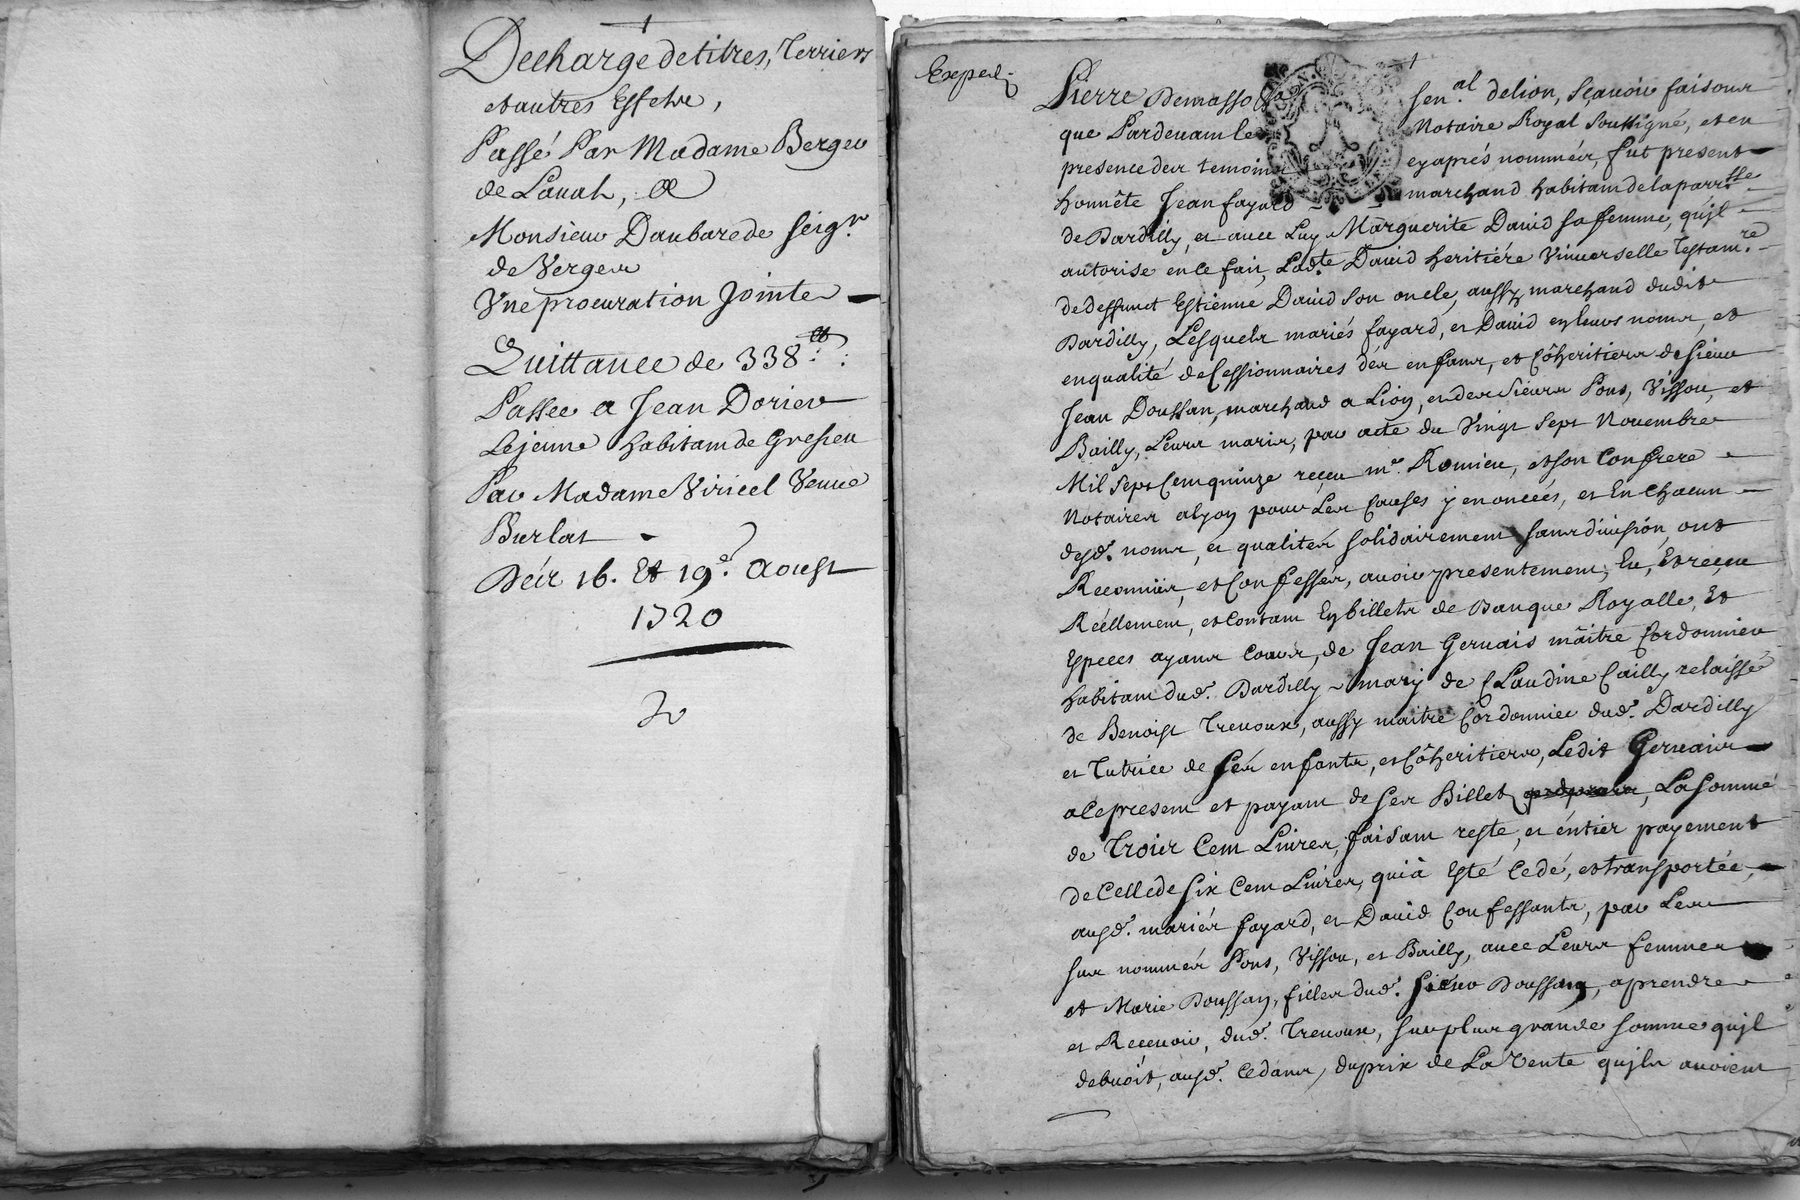 Decharge de titres, Terriers
et autres Effets,
Passé Par Madame Berger
de Laual, a
Monsieur Daubarede seigr
de Verger
Vne procuration Jointe
Quittance de 338 ₶
Passee a Jean Dorier
Le jeune habitant de Gresieu
Par Madame Viricel Veuue
Burlat
Des 16. Et 19e. Aoust
1720
Exped.
Pierre Demasso senal. de lion, sçauoir faisons
que Pardeuant le Notaire Royal soussigné, et en
presence des temoins cy aprés nommés, fut present
honnête Jean fayard marchand habitant de la parrsse
de Dardilly, et auec Luy Marguerite Dauid sa femme, qu'jl
autorise en ce fait, Ladte. Dauid heritiére Vniuerselle Testamre
de deffunct Estienne Dauid son oncle, aussy marchand dudit
Dardilly, Lesquels mariés fayard, et Dauid en leurs noms, et
en qualité de Cessionnaires des enfans, et Côheritiers de sieur
Jean Doussan, marchand a Lion, et des sieurs Pons, Vissou, et
Bailly, Leurs maris, par acte du Vingt sept Nouembre
Mil sept Cent quinze reçeu me. Romieu, et son Confrere
Notaires a Lyon pour Les Causes y enoncées, et En chacun
desd. noms, et qualités solidairement sans diuision, ont
Reconnüs, et Confessés, auoir presentement, Eu, Et reçeu
Réellement, et Contant En billets de Banque Royalle, Et
Especes ayans Cours, de Jean Geruais mâitre Cordonnier
habitant dud. Dardilly mary de Claudine Cailly relaissé
de Benoist Treuoux, aussy maitre Cordonnier dud. Dardilly
et Tutrice de ses enfants, et Côheritiers, Ledit Geruais
a Ce present et payant de ses Billets, La somme
de Trois Cent Liures, faisant reste, et éntier payement
de Celle de six Cent Liures, qui à Esté Cedé, et transportée,
ausd. mariés fayard, et Dauid Confessants, par Les
sus nommés Pons, Vissou, et Bailly, auec Leurs femmes
et Marie Doussan, filles dud. sieur Doussan, a prendre
et Receuoir, dud. Treuoux, sur plus grande somme qu'jl
debuoit, ausd. Cedans, du prix de La Vente qu'jls auoient